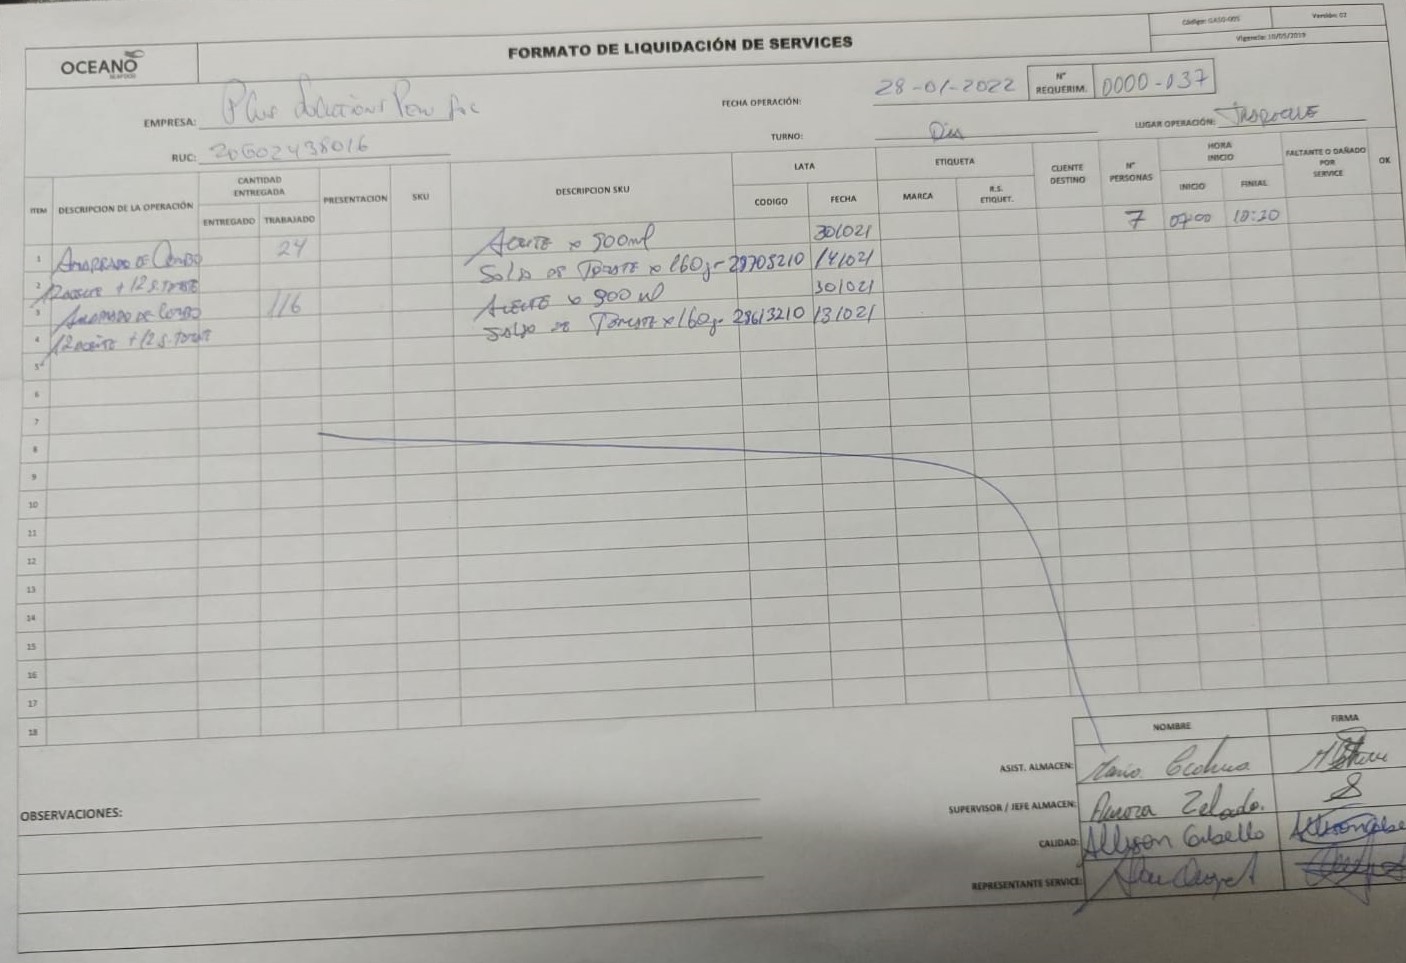 Código: GASG-005
Versión: 02
Vigencia: 10/05/2019
OCEANO
SEAFOOD
FORMATO DE LIQUIDACIÓN DE SERVICES
EMPRESA: Plus Solutions Peru Sac
FECHA OPERACIÓN: 28-01-2022
N° REQUERIM. 0000-037
RUC: 20602438016
TURNO: Dia
LUGAR OPERACIÓN:
ITEM DESCRIPCION DE LA OPERACIÓN CANTIDAD ENTREGADA ENTREGADO TRABAJADO PRESENTACION SKU DESCRIPCION SKU LATA CODIGO FECHA ETIQUETA MARCA R.S. ETIQUET. CLIENTE DESTINO N° PERSONAS HORA INICIO INICIO FINIAL FALTANTE O DAÑADO POR SERVICE OK
1 Amarrado de Combo 24 Aceite x 900ml 301021 7 07:00 10:20
2 12 aceite + 12 s. tomate Salsa de Tomate x 160gr 28705210 141021
3 Amarrado de Combo 116 Aceite x 900 ml 301021
4 12 aceite + 12 s. tomate Salsa de Tomate x 160gr 28613210 131021
5
6
7
8
9
10
11
12
13
14
15
16
17
18
NOMBRE FIRMA
ASIST. ALMACEN: Mario
SUPERVISOR / JEFE ALMACEN: Aurora Zelada.
CALIDAD: Allyson Cabello
REPRESENTANTE SERVICE:
OBSERVACIONES: